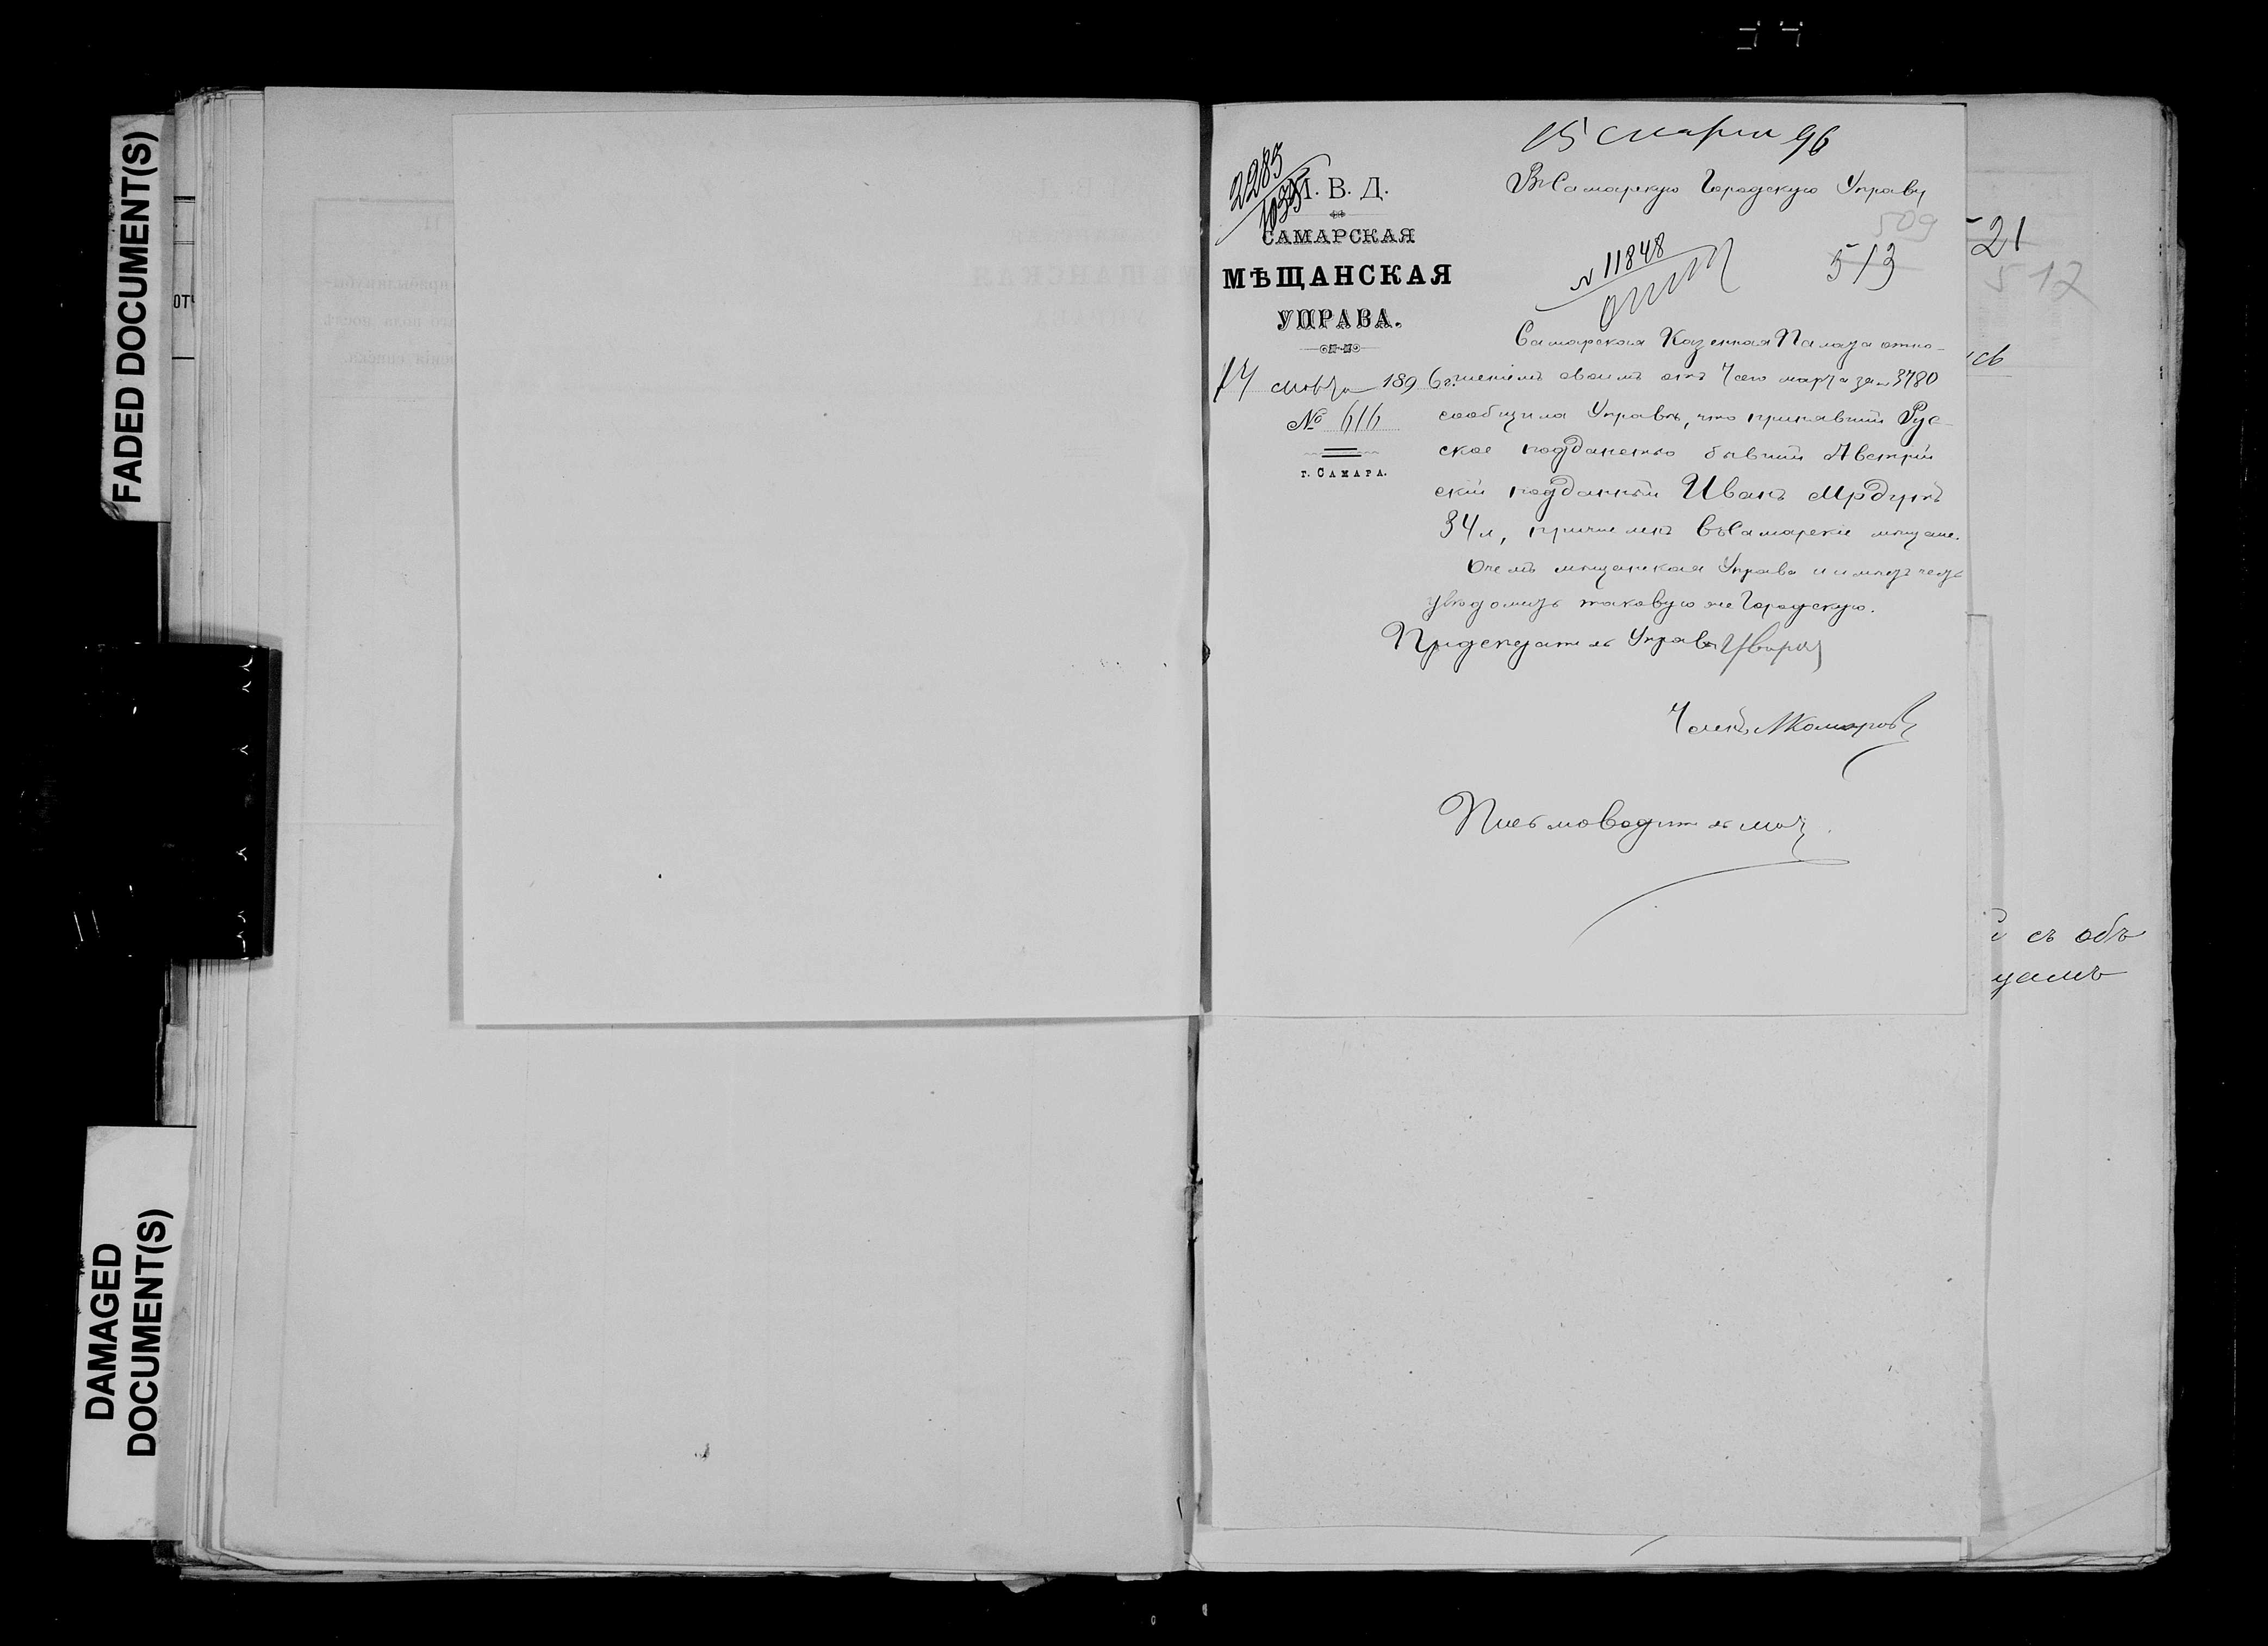 FADED DOCUMENT(S)
DAMAGED
DOCUMENT(S)
15 марта 96
2283
1035
М. В. Д.
САМАРСКАЯ
МѢЩАНСКАЯ
УПРАВА.
14 марта 1896 г.
№ 616
г. САМАРА.
Въ Самарскую Городскую Управу
509
513
N 11848
Самарская Казенная Палата отно-
шеніемъ своимъ отъ 7 сего марта за № 3780
сообщила Управѣ, что принявшій Рус-
ское подданство бывшій Австрій
скій подданный Иванъ
34 л, причисленъ въ Самарскіе мѣщане.
О чемъ мѣщанская Управа имѣетъ честь
увѣдомить таковую же Городскую.
Предсѣдатель Управы
Членъ Комаровъ
Письмоводитель
21
512
съ объ